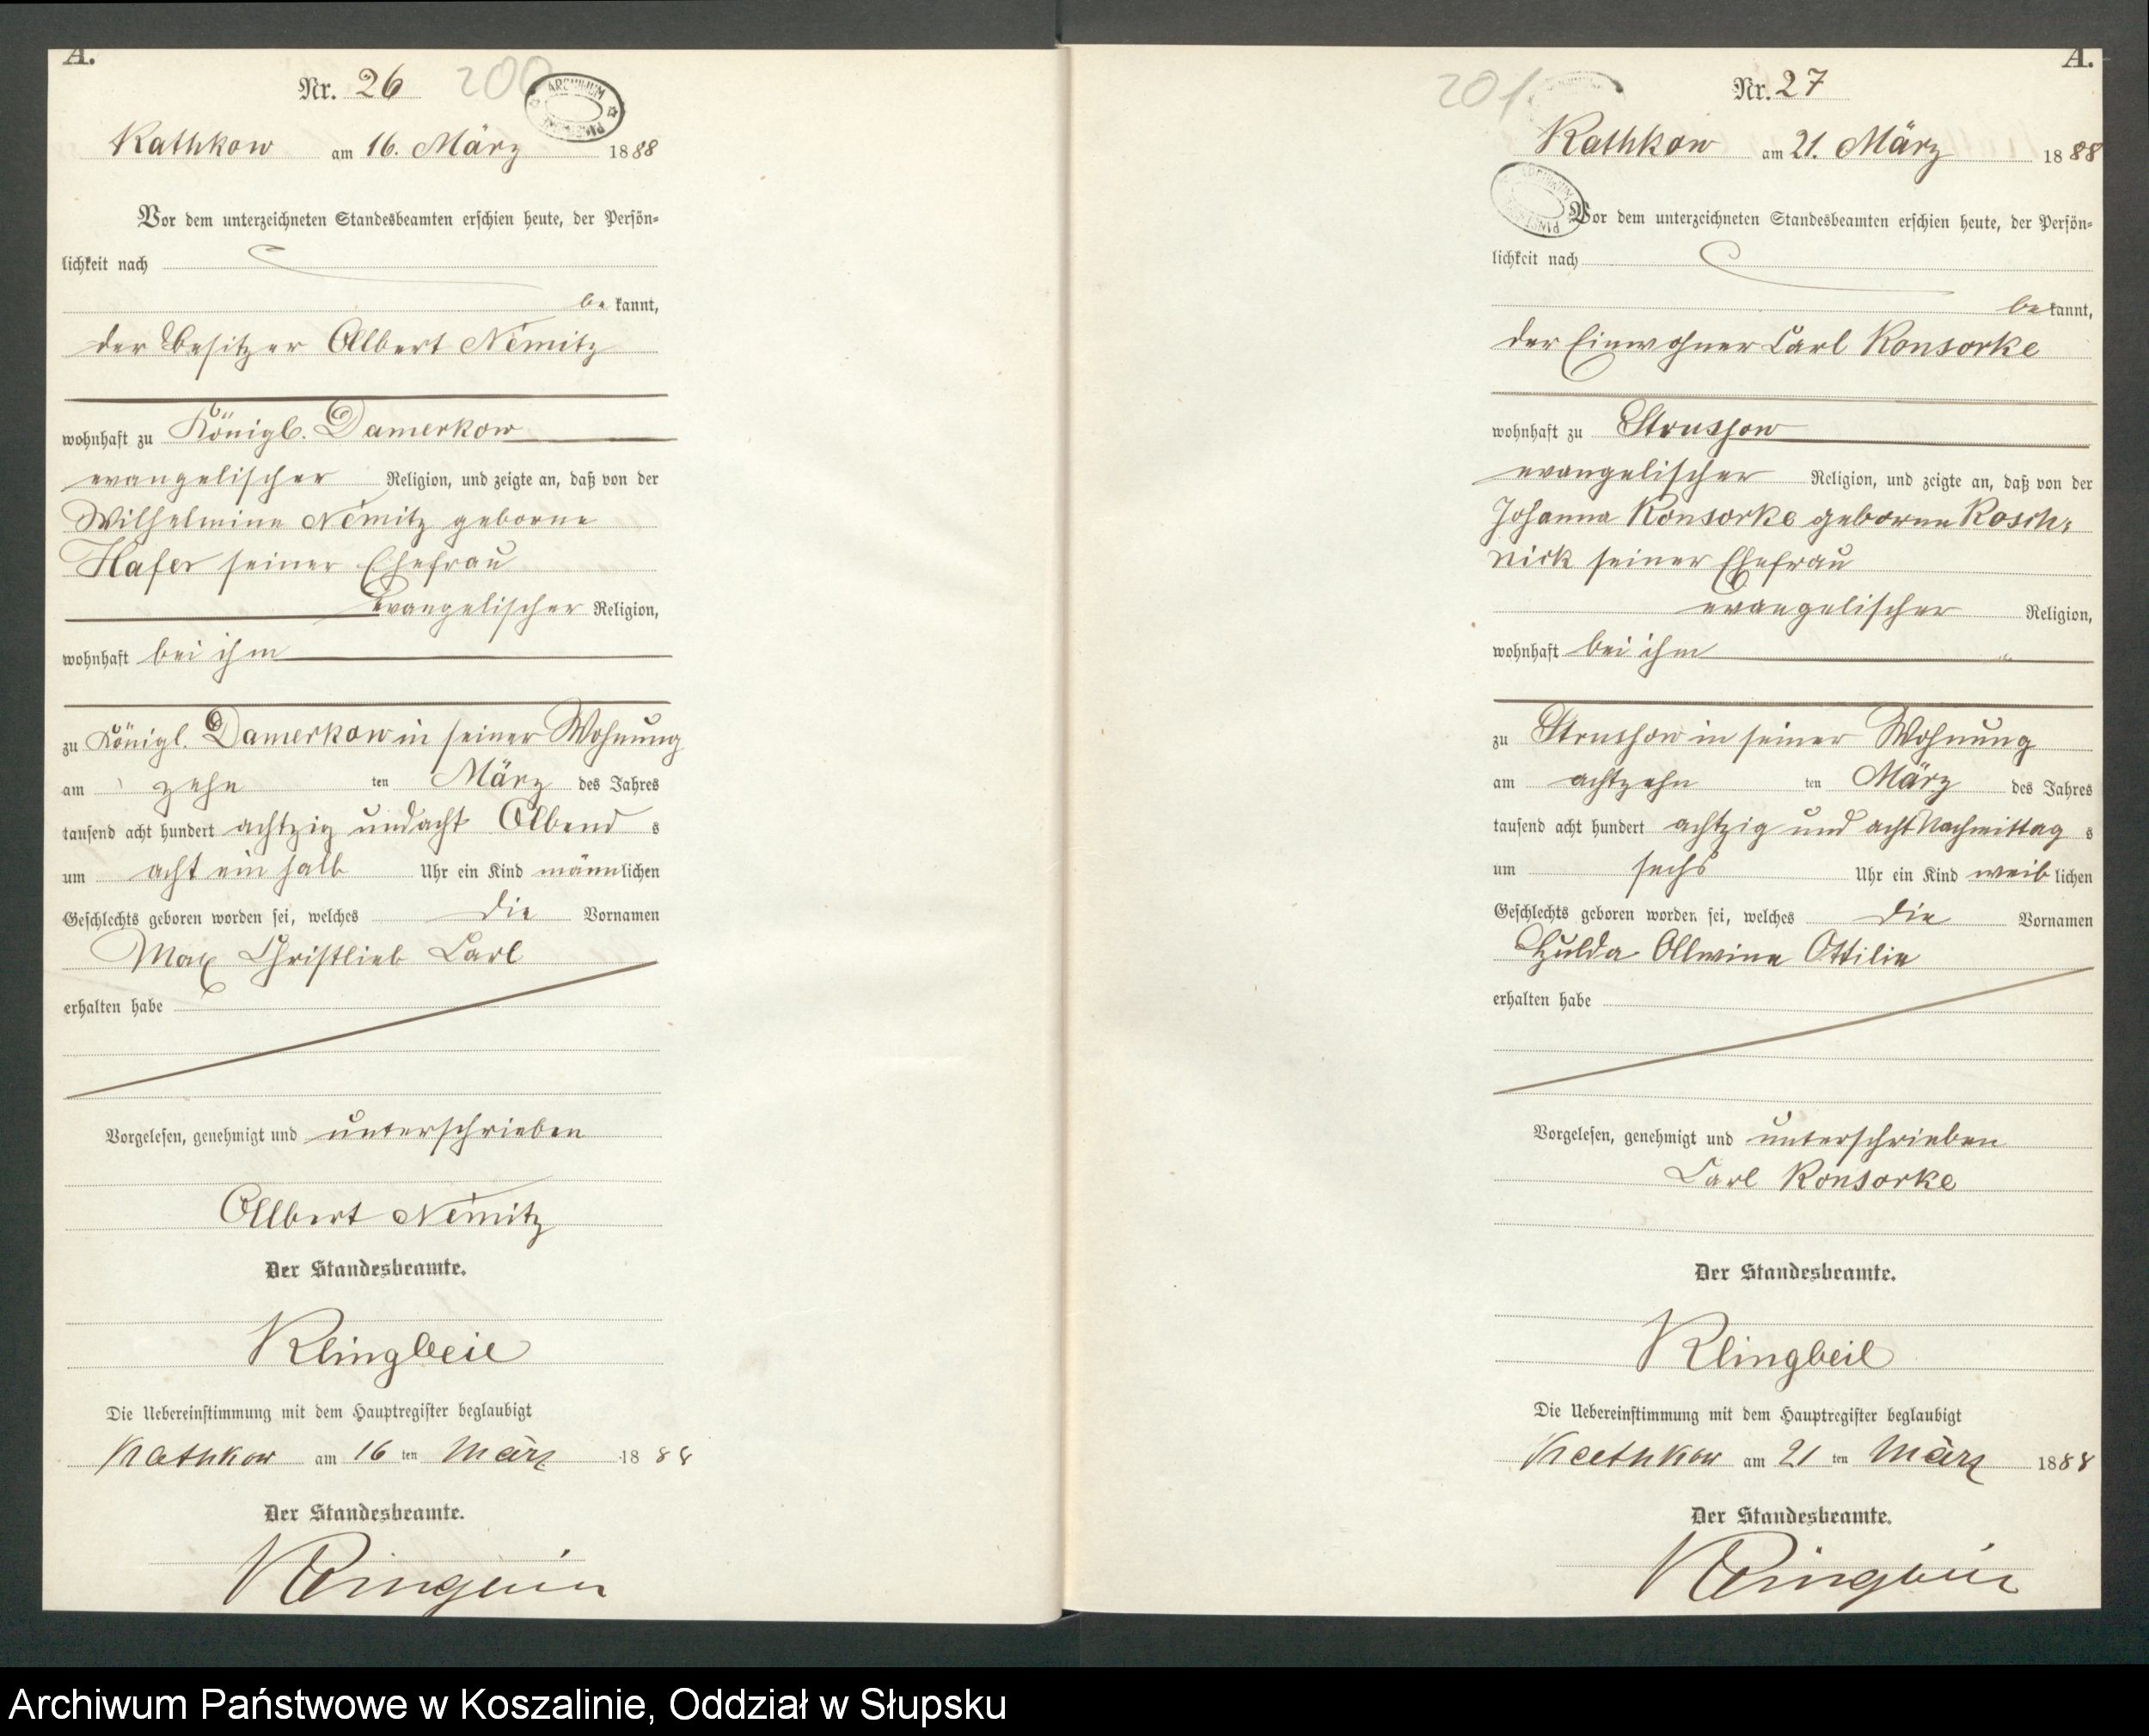 A.
Nr. 26
200
ARCHIWUM
Rathkow am 16. März 1888
Vor dem unterzeichneten Standesbeamten erschien heute, der Persön-
lichkeit nach
be kannt,
der Besitzer Albert Nemitz
wohnhaft zu Königl. Damerkow
evangelischer Religion, und zeigte an, daß von der
Wilhelmine Nemitz geborne
Hafer seiner Ehefrau
evangelischer Religion,
wohnhaft bei ihm
zu Königl. Damerkow in seiner Wohnung
am zehn ten März des Jahres
tausend acht hundert achtzig und acht Abend s
um acht ein halb Uhr ein Kind männlichen
Geschlechts geboren worden sei, welches die Vornamen
Max Christlieb Carl
erhalten habe
Vorgelesen, genehmigt und unterschrieben
Albert Nemitz
Der Standesbeamte.
Klingbeil
Die Uebereinstimmung mit dem Hauptregister beglaubigt
Rathkow am 16 ten März 1888
Der Standesbeamte.
Klingbeil
A.
Nr. 27
201
Rathkow am 21. März 1888
Vor dem unterzeichneten Standesbeamten erschien heute, der Persön-
lichkeit nach
be kannt,
der Einwohner Carl Konsorke
wohnhaft zu Strussow
evangelischer Religion, und zeigte an, daß von der
Johanna Konsorke geborne Kosch-
nick seiner Ehefrau
evangelischer Religion,
wohnhaft bei ihm
zu Strussow in seiner Wohnung
am achtzehn ten März des Jahres
tausend acht hundert achtzig und acht Nachmittag s
um sechs Uhr ein Kind weib lichen
Geschlechts geboren worden sei, welches die Vornamen
Hulda Alwine Ottilie
erhalten habe
Vorgelesen, genehmigt und unterschrieben
Carl Konsorke
Der Standesbeamte.
Klingbeil
Die Uebereinstimmung mit dem Hauptregister beglaubigt
Rathkow am 21 ten März 1888
Der Standesbeamte.
Klingbeil
Archiwum Państwowe w Koszalinie, Oddział w Słupsku